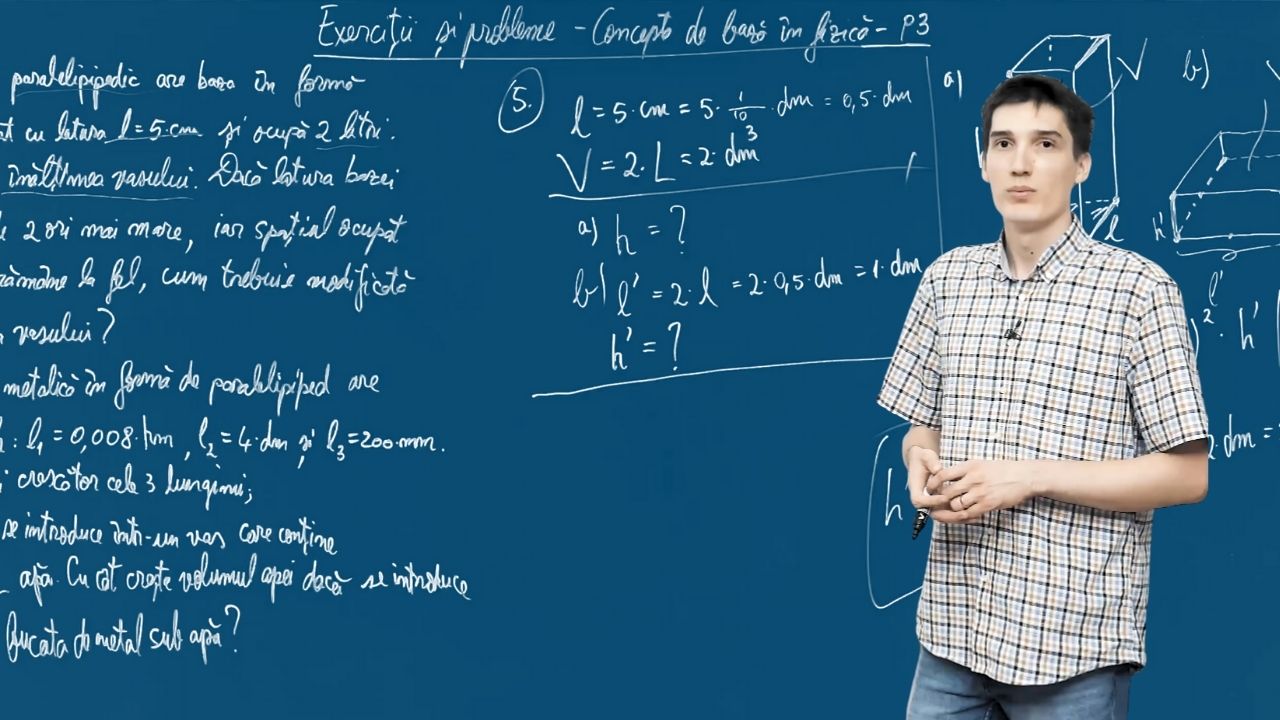 Exerciții și probleme - Concepte de bază în fizică - P3
paralelipipedic are baza în formă
cu latura l = 5·cm și ocupă 2 litri.
înălțimea vasului. Dacă latura bazei
2 ori mai mare, iar spațiul ocupat
rămâne la fel, cum trebuie modificată
vasului?
metalică în formă de paralelipiped are
: l₁ = 0,008·hm, l₂ = 4·dm și l₃ = 200·mm.
crescător cele 3 lungimi;
se introduce într-un vas care conține
apă. Cu cât crește volumul apei dacă se introduce
bucata de metal sub apă?
5.
l = 5·cm = 5·1/10·dm = 0,5·dm
V = 2·L = 2·dm³
a) h = ?
b) l' = 2·l = 2·0,5·dm = 1·dm
h' = ?
a)
V
l
h
b)
h'
l'
)²·h'
2·dm =